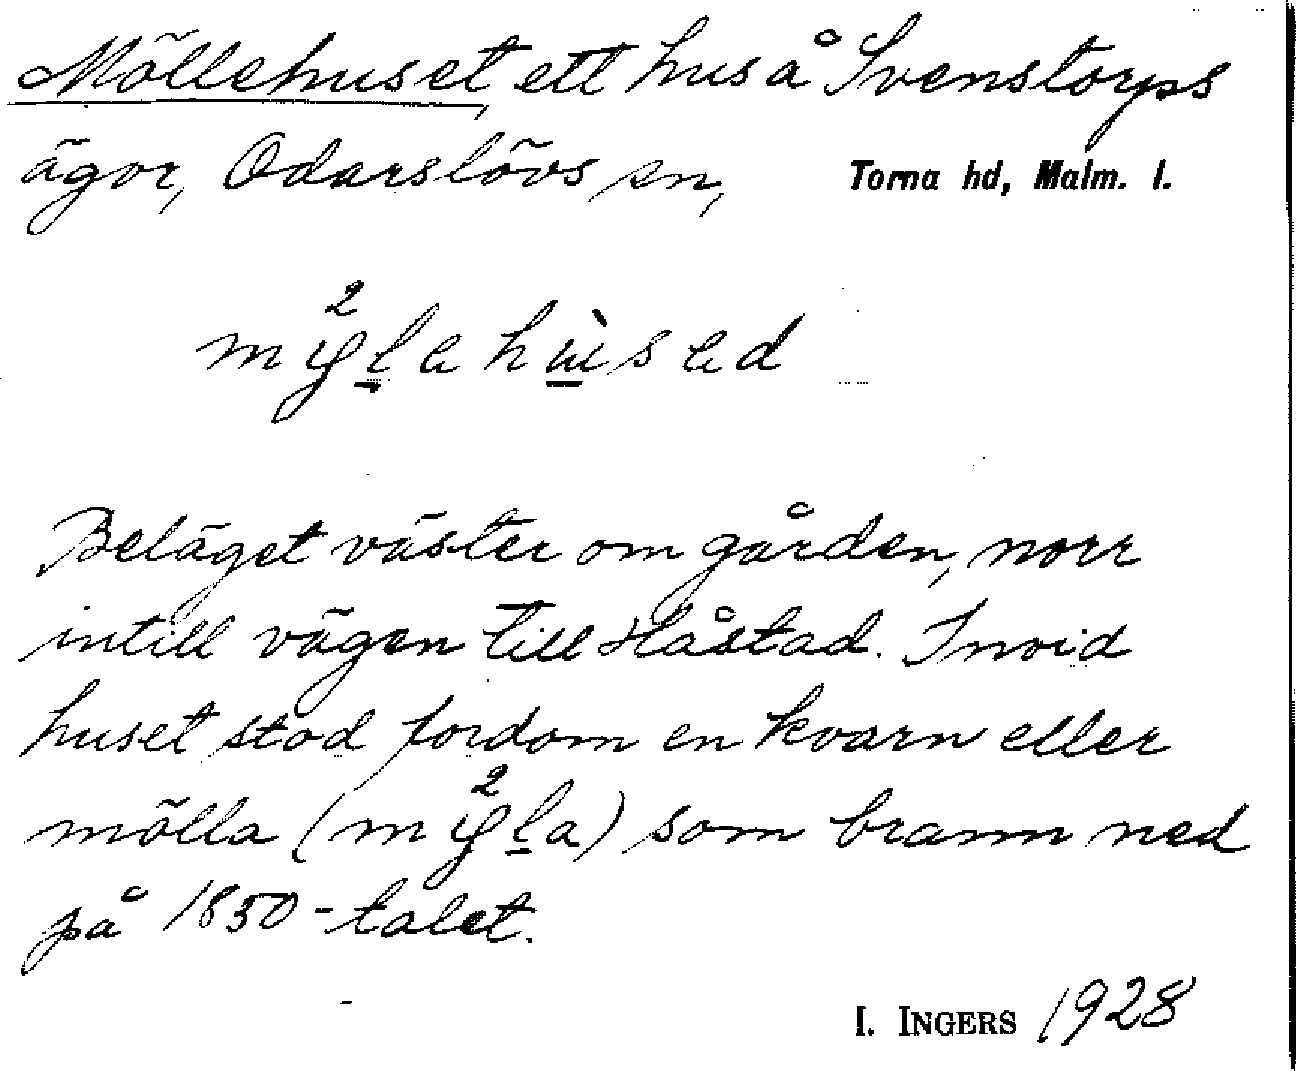 Möllehuset, ett hus å Svenstorps
ägor, Odarslövs sn, Torna hd, Malm. l.
Beläget väster om gården, norr
intill vägen till Håstad. Invid
huset stod fordom en kvarn eller
mölla (m) som brann ned
på 1850-talet.
I. INGERS 1928